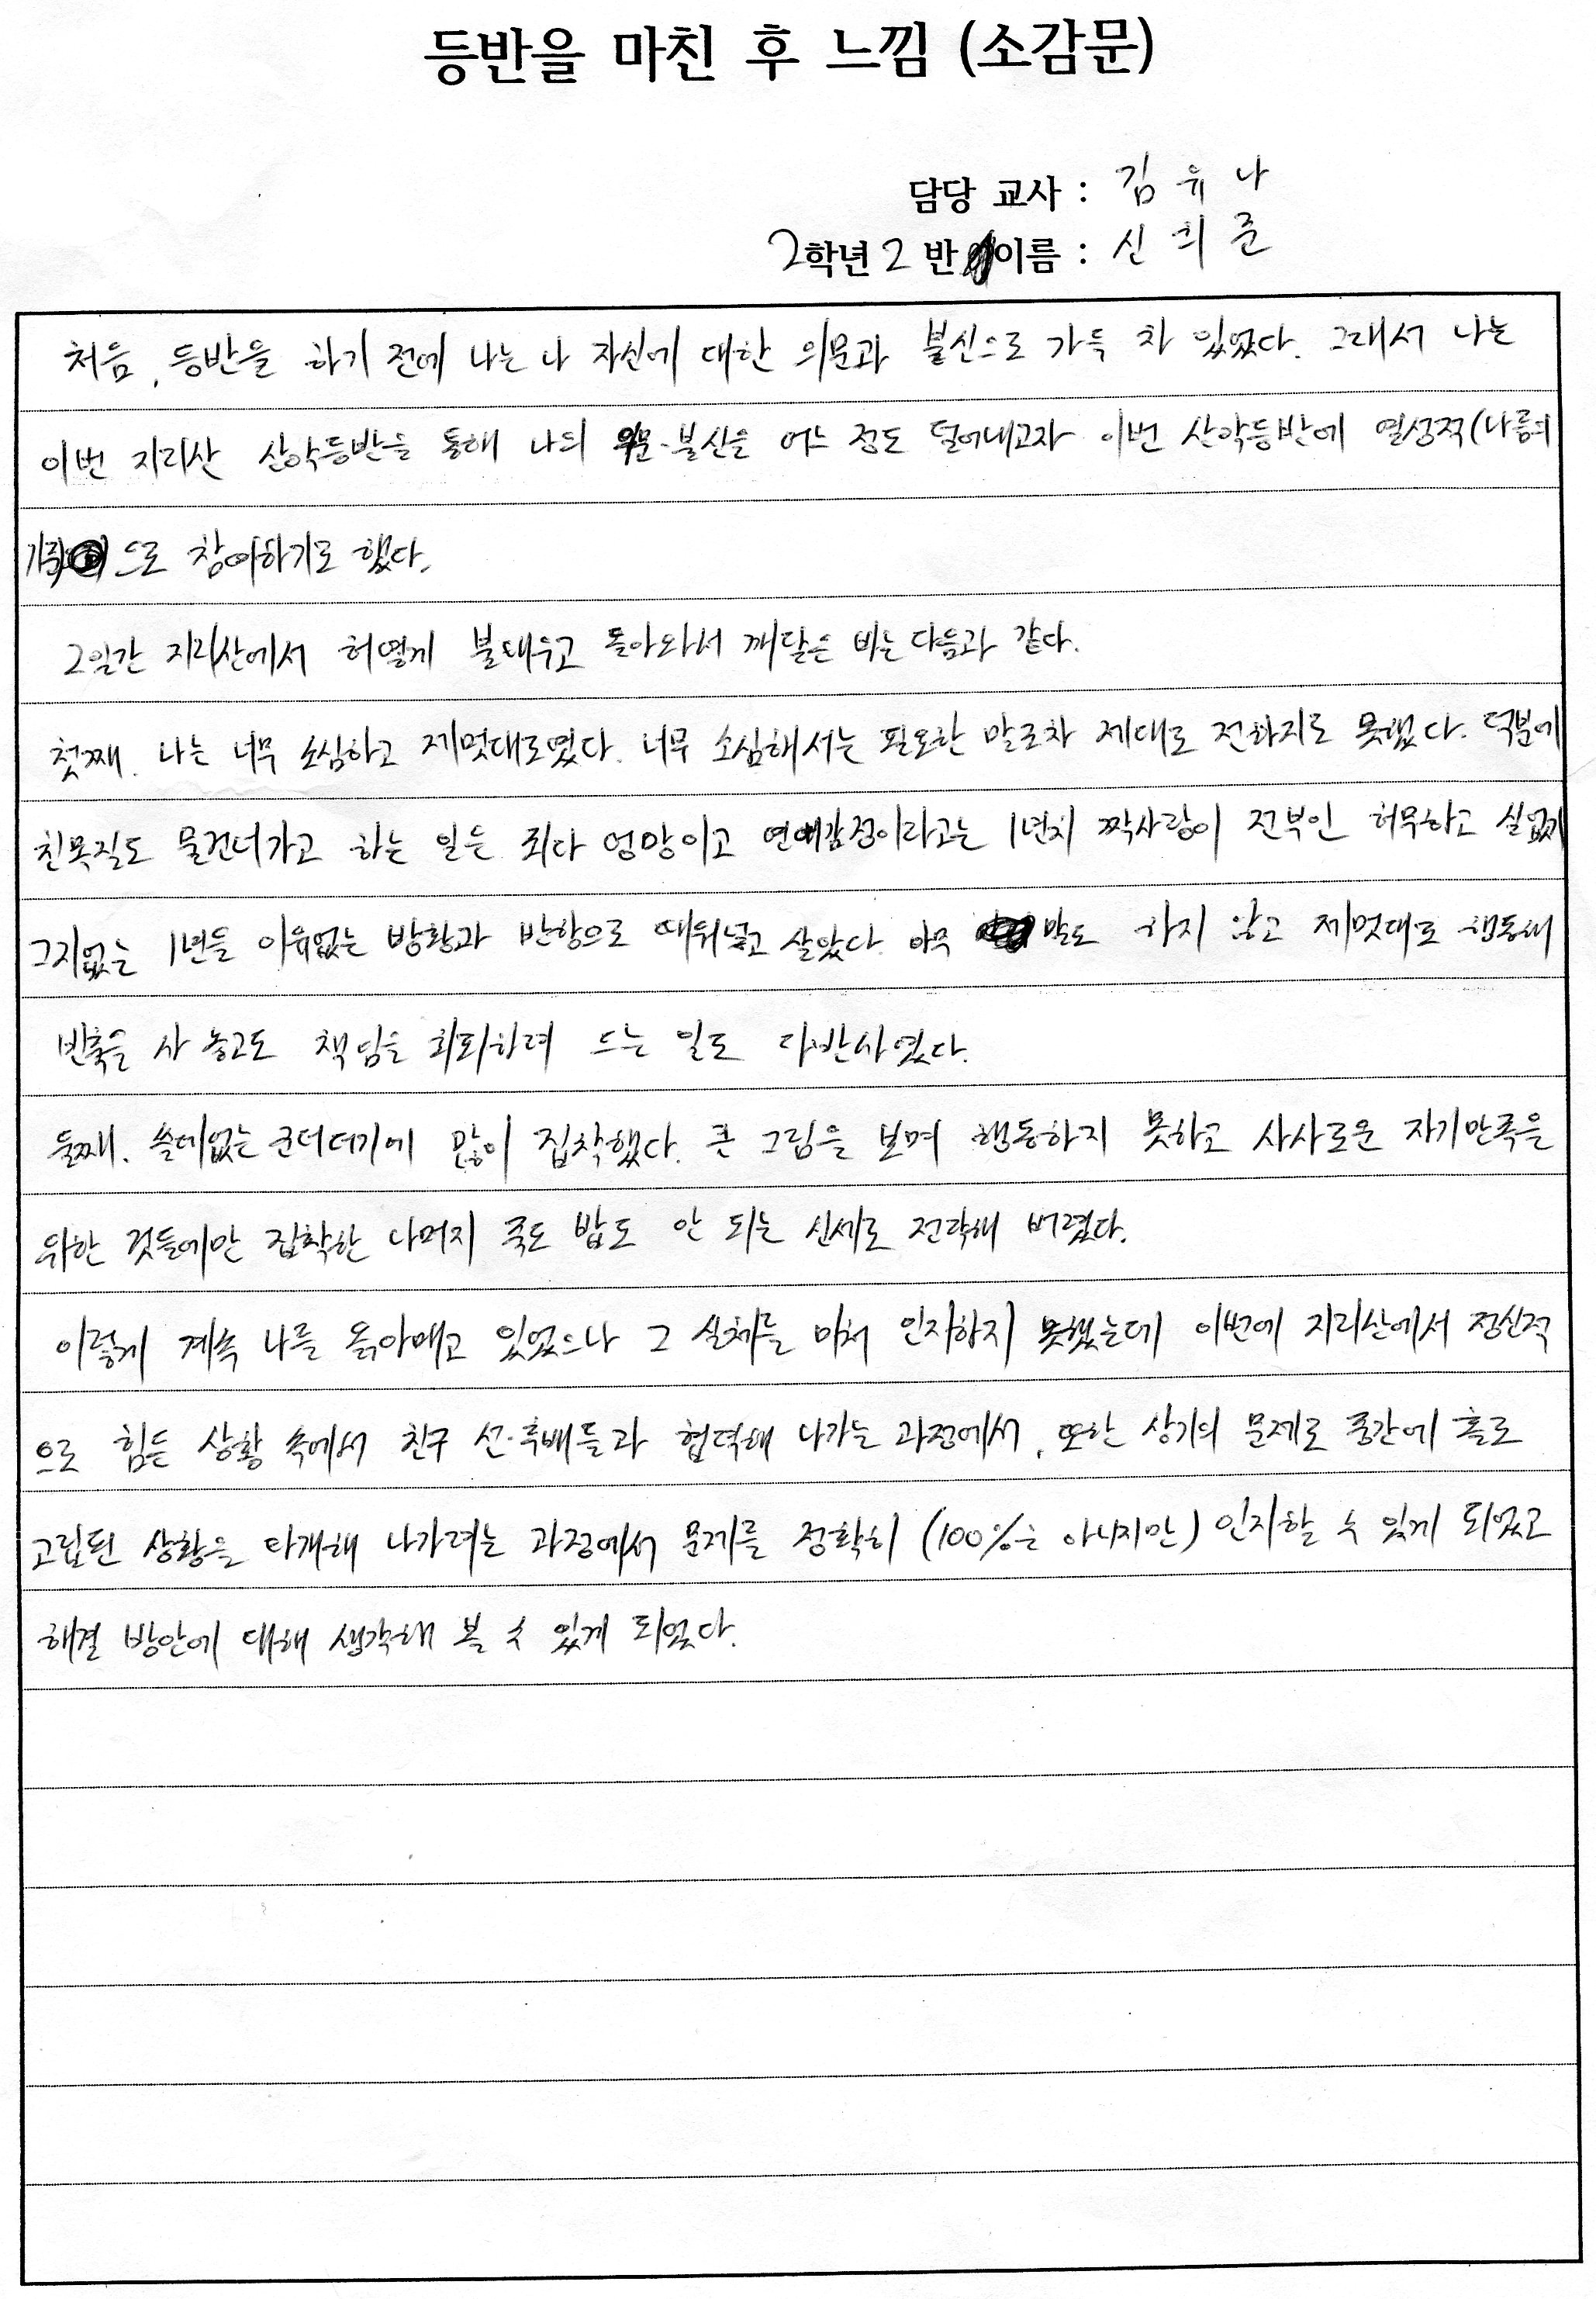 등반을 마친 후 느낌 (소감문)
담당 교사 : 김유나
2학년 2 반 이름 : 신희준
처음, 등반을 하기 전에 나는 나 자신에 대한 의문과 불신으로 가득 차 있었다. 그래서 나는
이번 지리산 산악등반을 통해 나의 의문·불신을 어느 정도 덜어내고자 이번 산악등반에 열성적(나름의
기준)으로 참여하기로 했다.
2일간 지리산에서 허옇게 불태우고 돌아와서 깨달은 바는 다음과 같다.
첫째. 나는 너무 소심하고 제멋대로였다. 너무 소심해서는 필요한 말조차 제대로 전하지도 못했다. 덕분에
친목질도 물건너가고 하는 일은 죄다 엉망이고 연애감정이라고는 1년치 짝사랑이 전부인 허무하고 실없기
그지없는 1년을 이유없는 방황과 반항으로 때워넣고 살았다. 아무 말도 하지 않고 제멋대로 행동해
빈축을 사 놓고도 책임을 회피하려 드는 일도 다반사였다.
둘째. 쓸데없는 군더더기에 많이 집착했다. 큰 그림을 보며 행동하지 못하고 사사로운 자기만족을
위한 것들에만 집착한 나머지 죽도 밥도 안 되는 신세로 전락해 버렸다.
이렇게 계속 나를 옭아매고 있었으나 그 실체를 미처 인지하지 못했는데 이번에 지리산에서 정신적
으로 힘든 상황 속에서 친구 선·후배들과 협력해 나가는 과정에서, 또한 상기의 문제로 중간에 홀로
고립된 상황을 타개해 나가려는 과정에서 문제를 정확히 (100%는 아니지만) 인지할 수 있게 되었고
해결 방안에 대해 생각해 볼 수 있게 되었다.